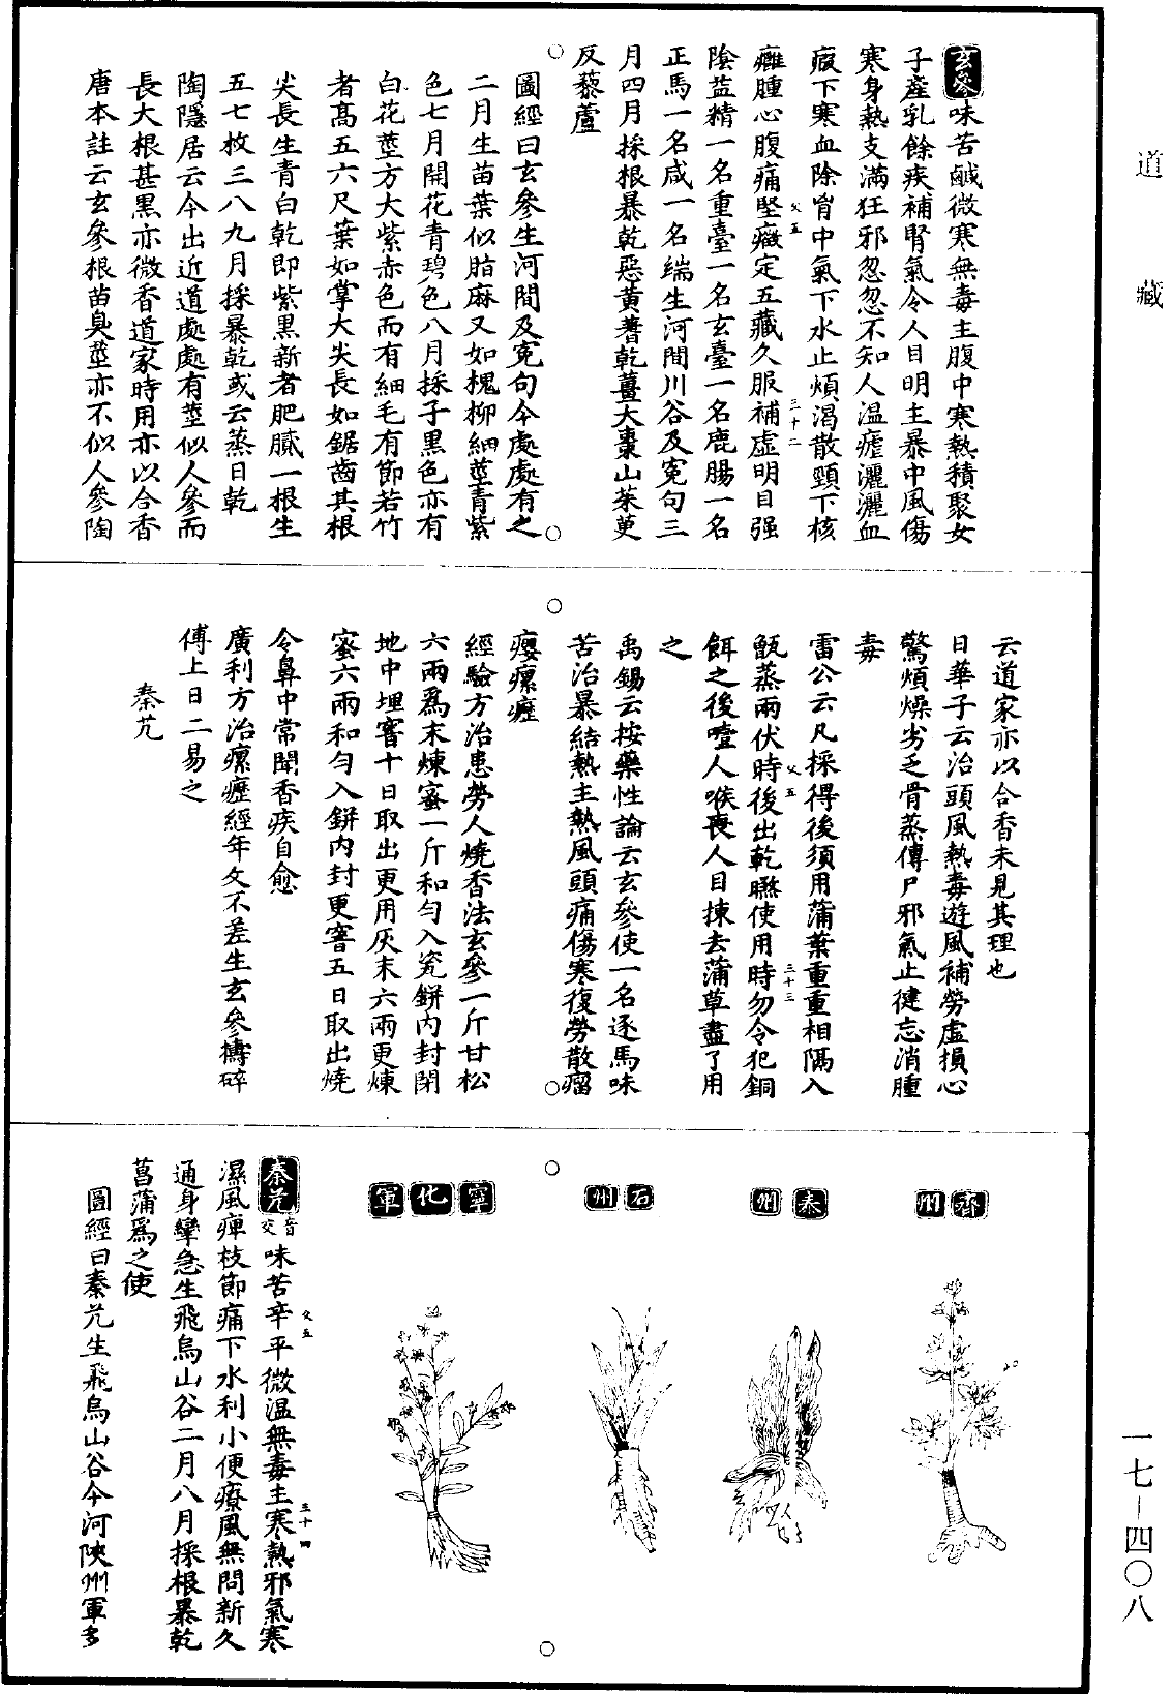 道藏
玄參味苦鹹微寒無毒主腹中寒熱積聚女
子產乳餘疾補腎氣令人目明主暴中風傷
寒身熱支滿狂邪忽忽不知人温瘧灑灑血
瘕下寒血除胷中氣下水止煩渴散頸下核
癰腫心腹痛堅癥定五藏久服補虛明目强
陰益精一名重臺一名玄臺一名鹿腸一名
正馬一名咸一名端生河間川谷及寃句三
月四月採根暴乾惡黄蓍乾薑大棗山茱萸
反藜蘆
圖經曰玄參生河間及寃句今處處有之
二月生苗葉似脂麻又如槐柳細莖青紫
色七月開花青碧色八月採子黑色亦有
白花莖方大紫赤色而有細毛有節若竹
者高五六尺葉如掌大尖長如鋸齒其根
尖長生青白乾即紫黑新者肥膩一根生
五七枚三八九月採暴乾或云蒸日乾
陶隱居云今出近道處處有莖似人參而
長大根甚黑亦微香道家時用亦以合香
唐本註云玄參根苗臭莖亦不似人參陶
爻五
三十二
云道家亦以合香未見其理也
日華子云治頭風熱毒遊風補勞虛損心
驚煩燥劣乏骨蒸傳尸邪氣止徤忘消腫
毒
雷公云凡採得後須用蒲葉重重相隔入
甑蒸兩伏時後出乾曬使用時勿令犯銅
餌之後噎人喉喪人目揀去蒲草盡了用
之
禹錫云按藥性論云玄參使一名逐馬味
苦治暴結熱主熱風頭痛傷寒復勞散瘤
癭瘰癧
經驗方治患勞人燒香法玄參一斤甘松
六兩爲末煉蜜一斤和匀入瓷缾内封閉
地中埋窨十日取出更用灰末六兩更煉
蜜六兩和匀入缾内封更窨五日取出燒
令鼻中常聞香疾自愈
廣利方治瘰癧經年久不差生玄參擣碎
傅上日二易之
秦艽
爻五
三十三
齊州
秦州
石州
寧化軍
秦艽音交味苦辛平微温無毒主寒熱邪氣寒
濕風痺枝節痛下水利小便療風無問新久
通身攣急生飛烏山谷二月八月採根暴乾
菖蒲爲之使
圖經曰秦艽生飛烏山谷今河陝州軍多
爻五
三十四
一七－四〇八